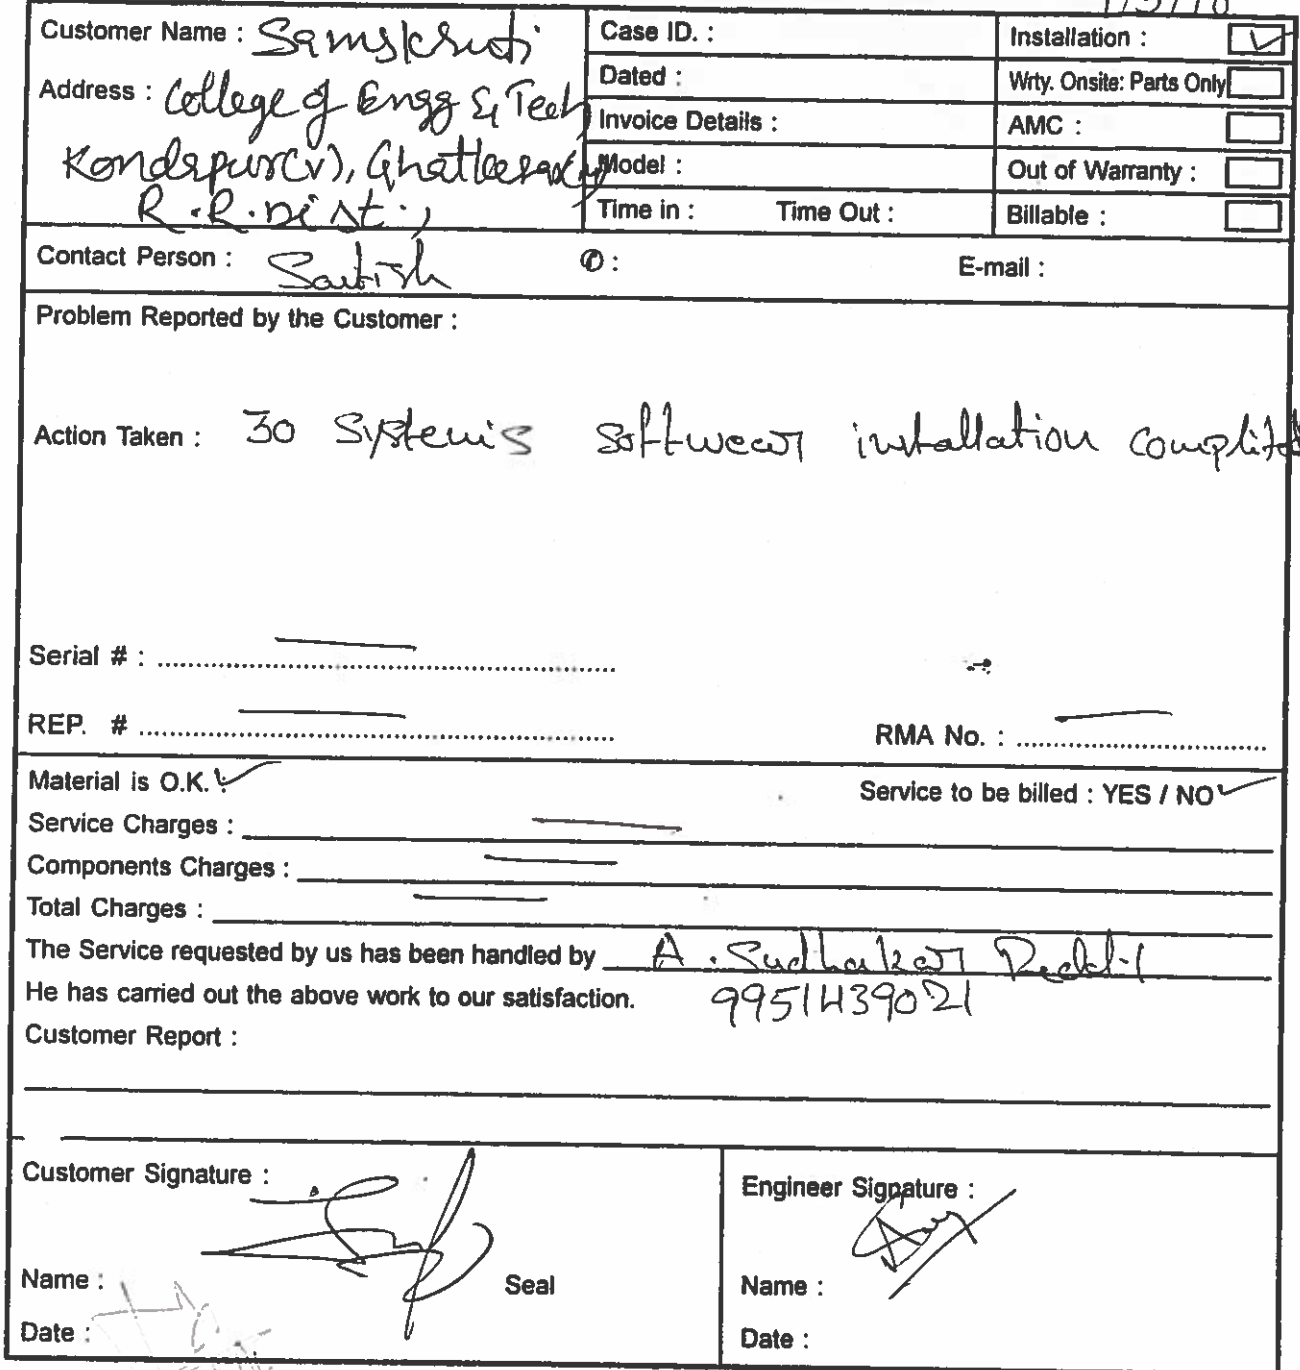 Customer Name : Samskruti
Address : College of Engg & Tech
Kondapur(v), Ghatkesar(
R.R.Dist.,
Case ID. :
Dated :
Invoice Details :
Model :
Time in : Time Out :
Installation : ✓
Wrty. Onsite: Parts Only
AMC :
Out of Warranty :
Billable :
Contact Person : Satish ✆ : E-mail :
Problem Reported by the Customer :
Action Taken : 30 Systems softwear installation complited
Serial # :
REP. #
RMA No. :
Material is O.K. : ✓ Service to be billed : YES / NO ✓
Service Charges :
Components Charges :
Total Charges :
The Service requested by us has been handled by A. Sudhakar Reddy
He has carried out the above work to our satisfaction. 9951439021
Customer Report :
Customer Signature :
Name : Seal
Date :
Engineer Signature :
Name :
Date :